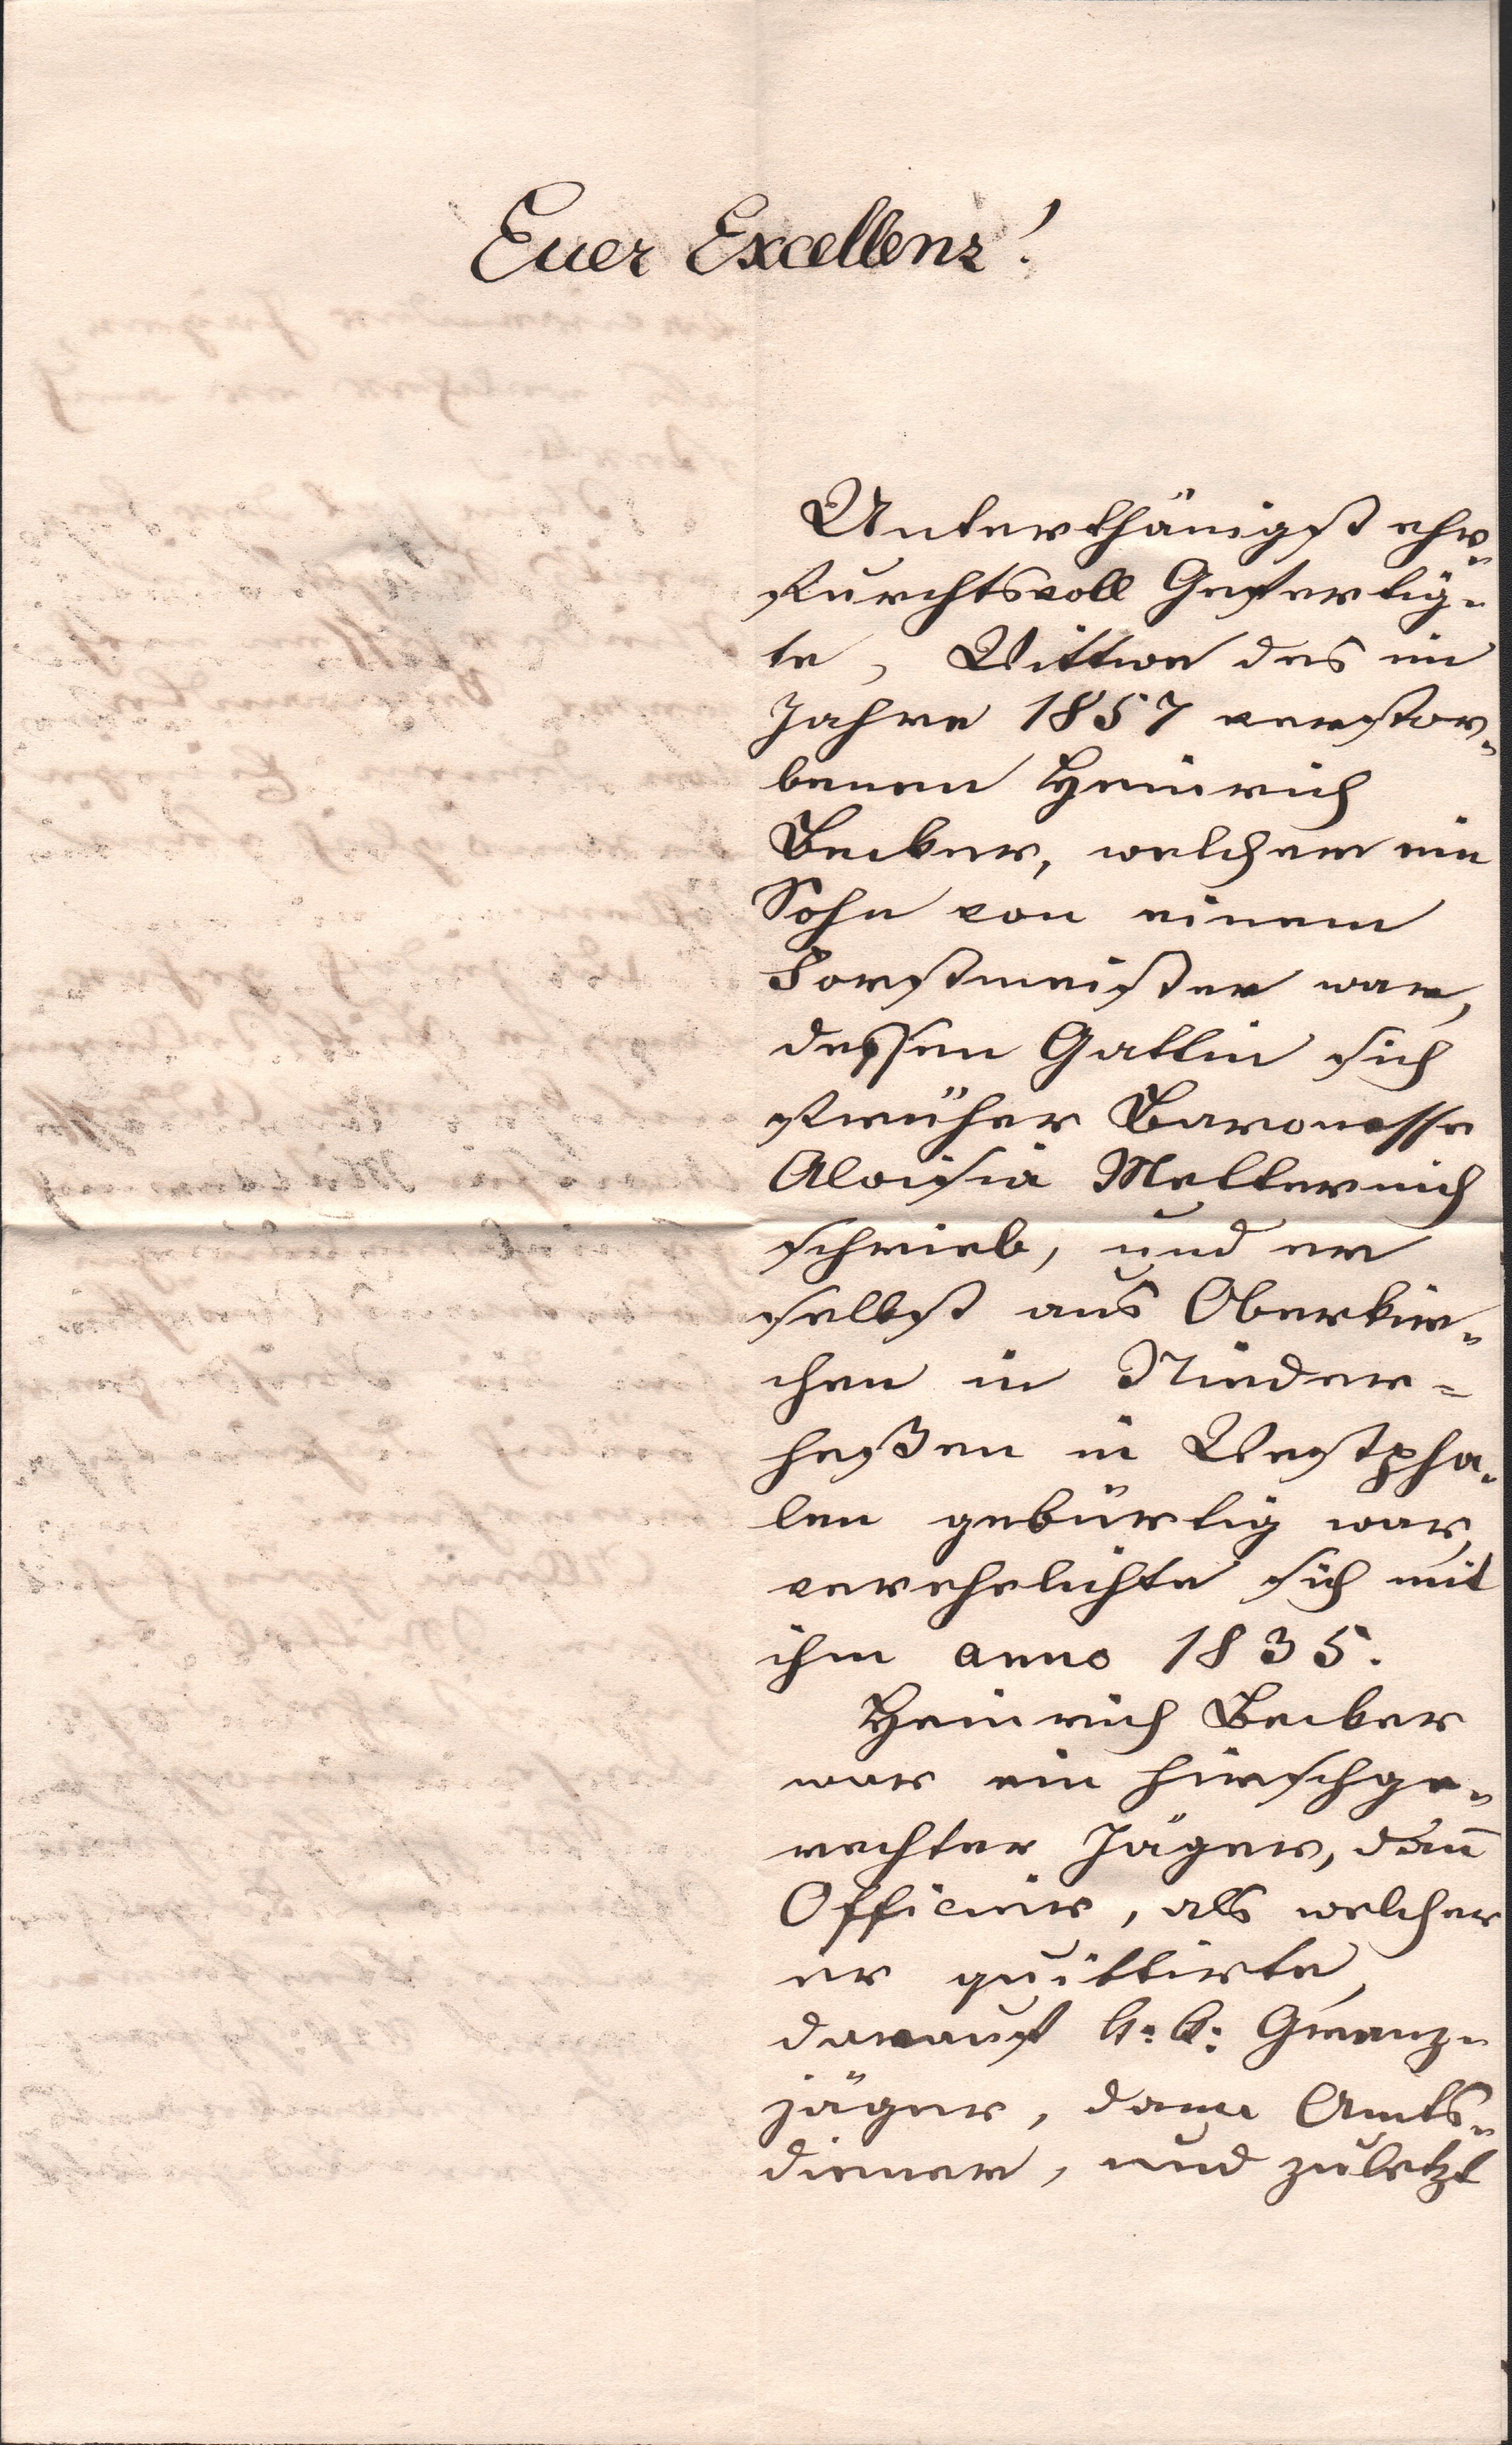 Euer Excellenz!
Unterthänigst ehr-
furchtsvoll Gefertig-
te, Wittwe des im
Jahre 1857 verstor-
benen Heinrich
Becker, welcher ein
Sohn von einem
Forstmeister war,
dessen Gattin sich
früher Baronesse
Aloisia Metternich
schrieb, und er
selbst aus Oberkir-
chen in Nieder-
heßen in Westpha-
len gebürtig war,
verehelichte sich mit
ihm anno 1835.
Heinrich Becker
war ein hirschge-
rechter Jäger, dañ
Officier, als welcher
er quittirte,
darauf k: k: Gränz-
jäger, dann Amts-
diener, und zuletzt